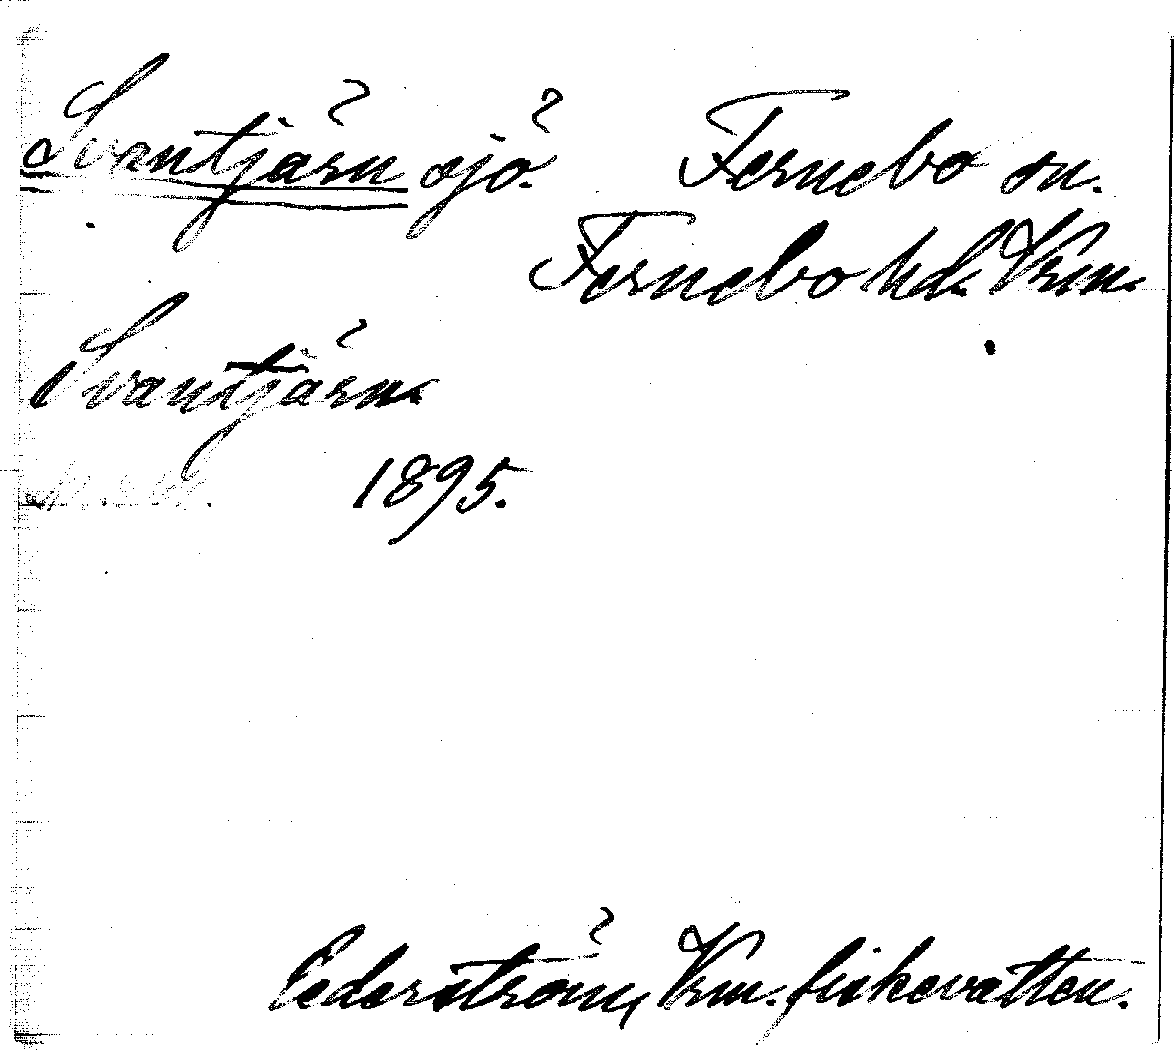 Svantjärn sjö. Fernebo sn.
Fernebo hd. Vrm.
Svantjärn.
1895.
Cederström, Vrm. fiskevatten.